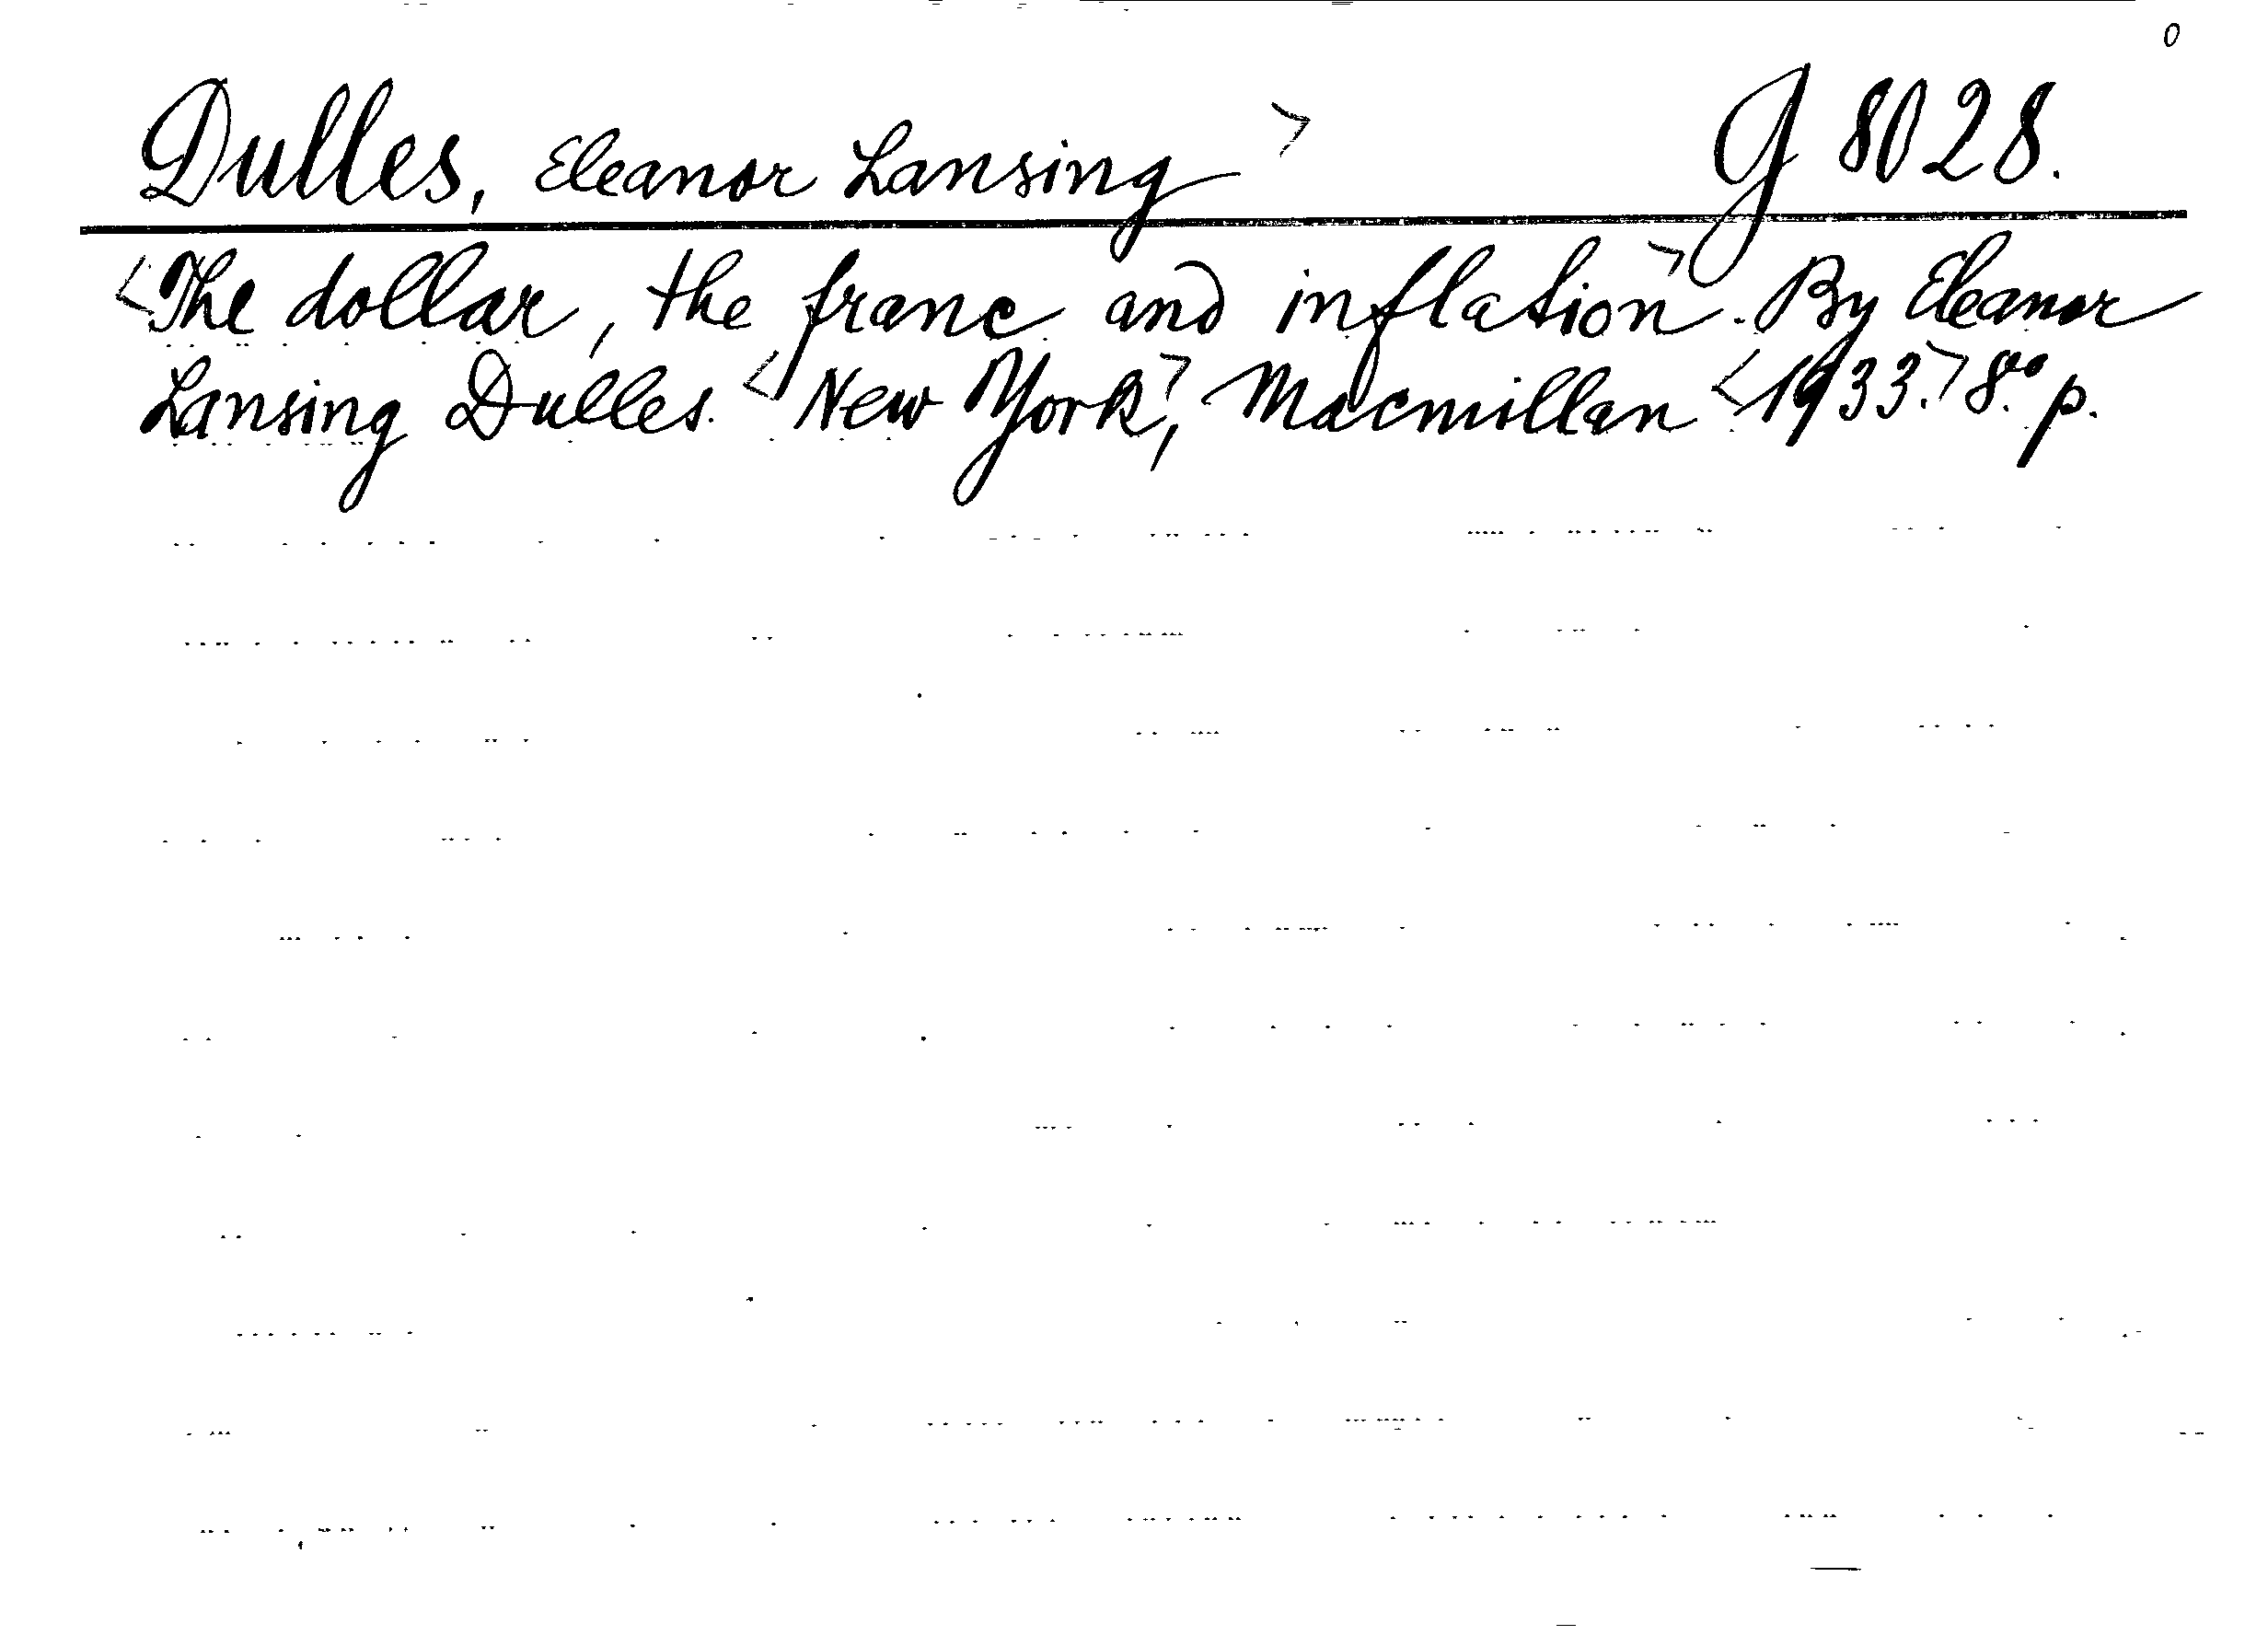 0
Dulles, Eleanor Lansing> G 8028.
<The dollar, the franc and inflation>. By Eleanor
Lansing Dulles. <New York>, Macmillan <1933.> 8.° p.